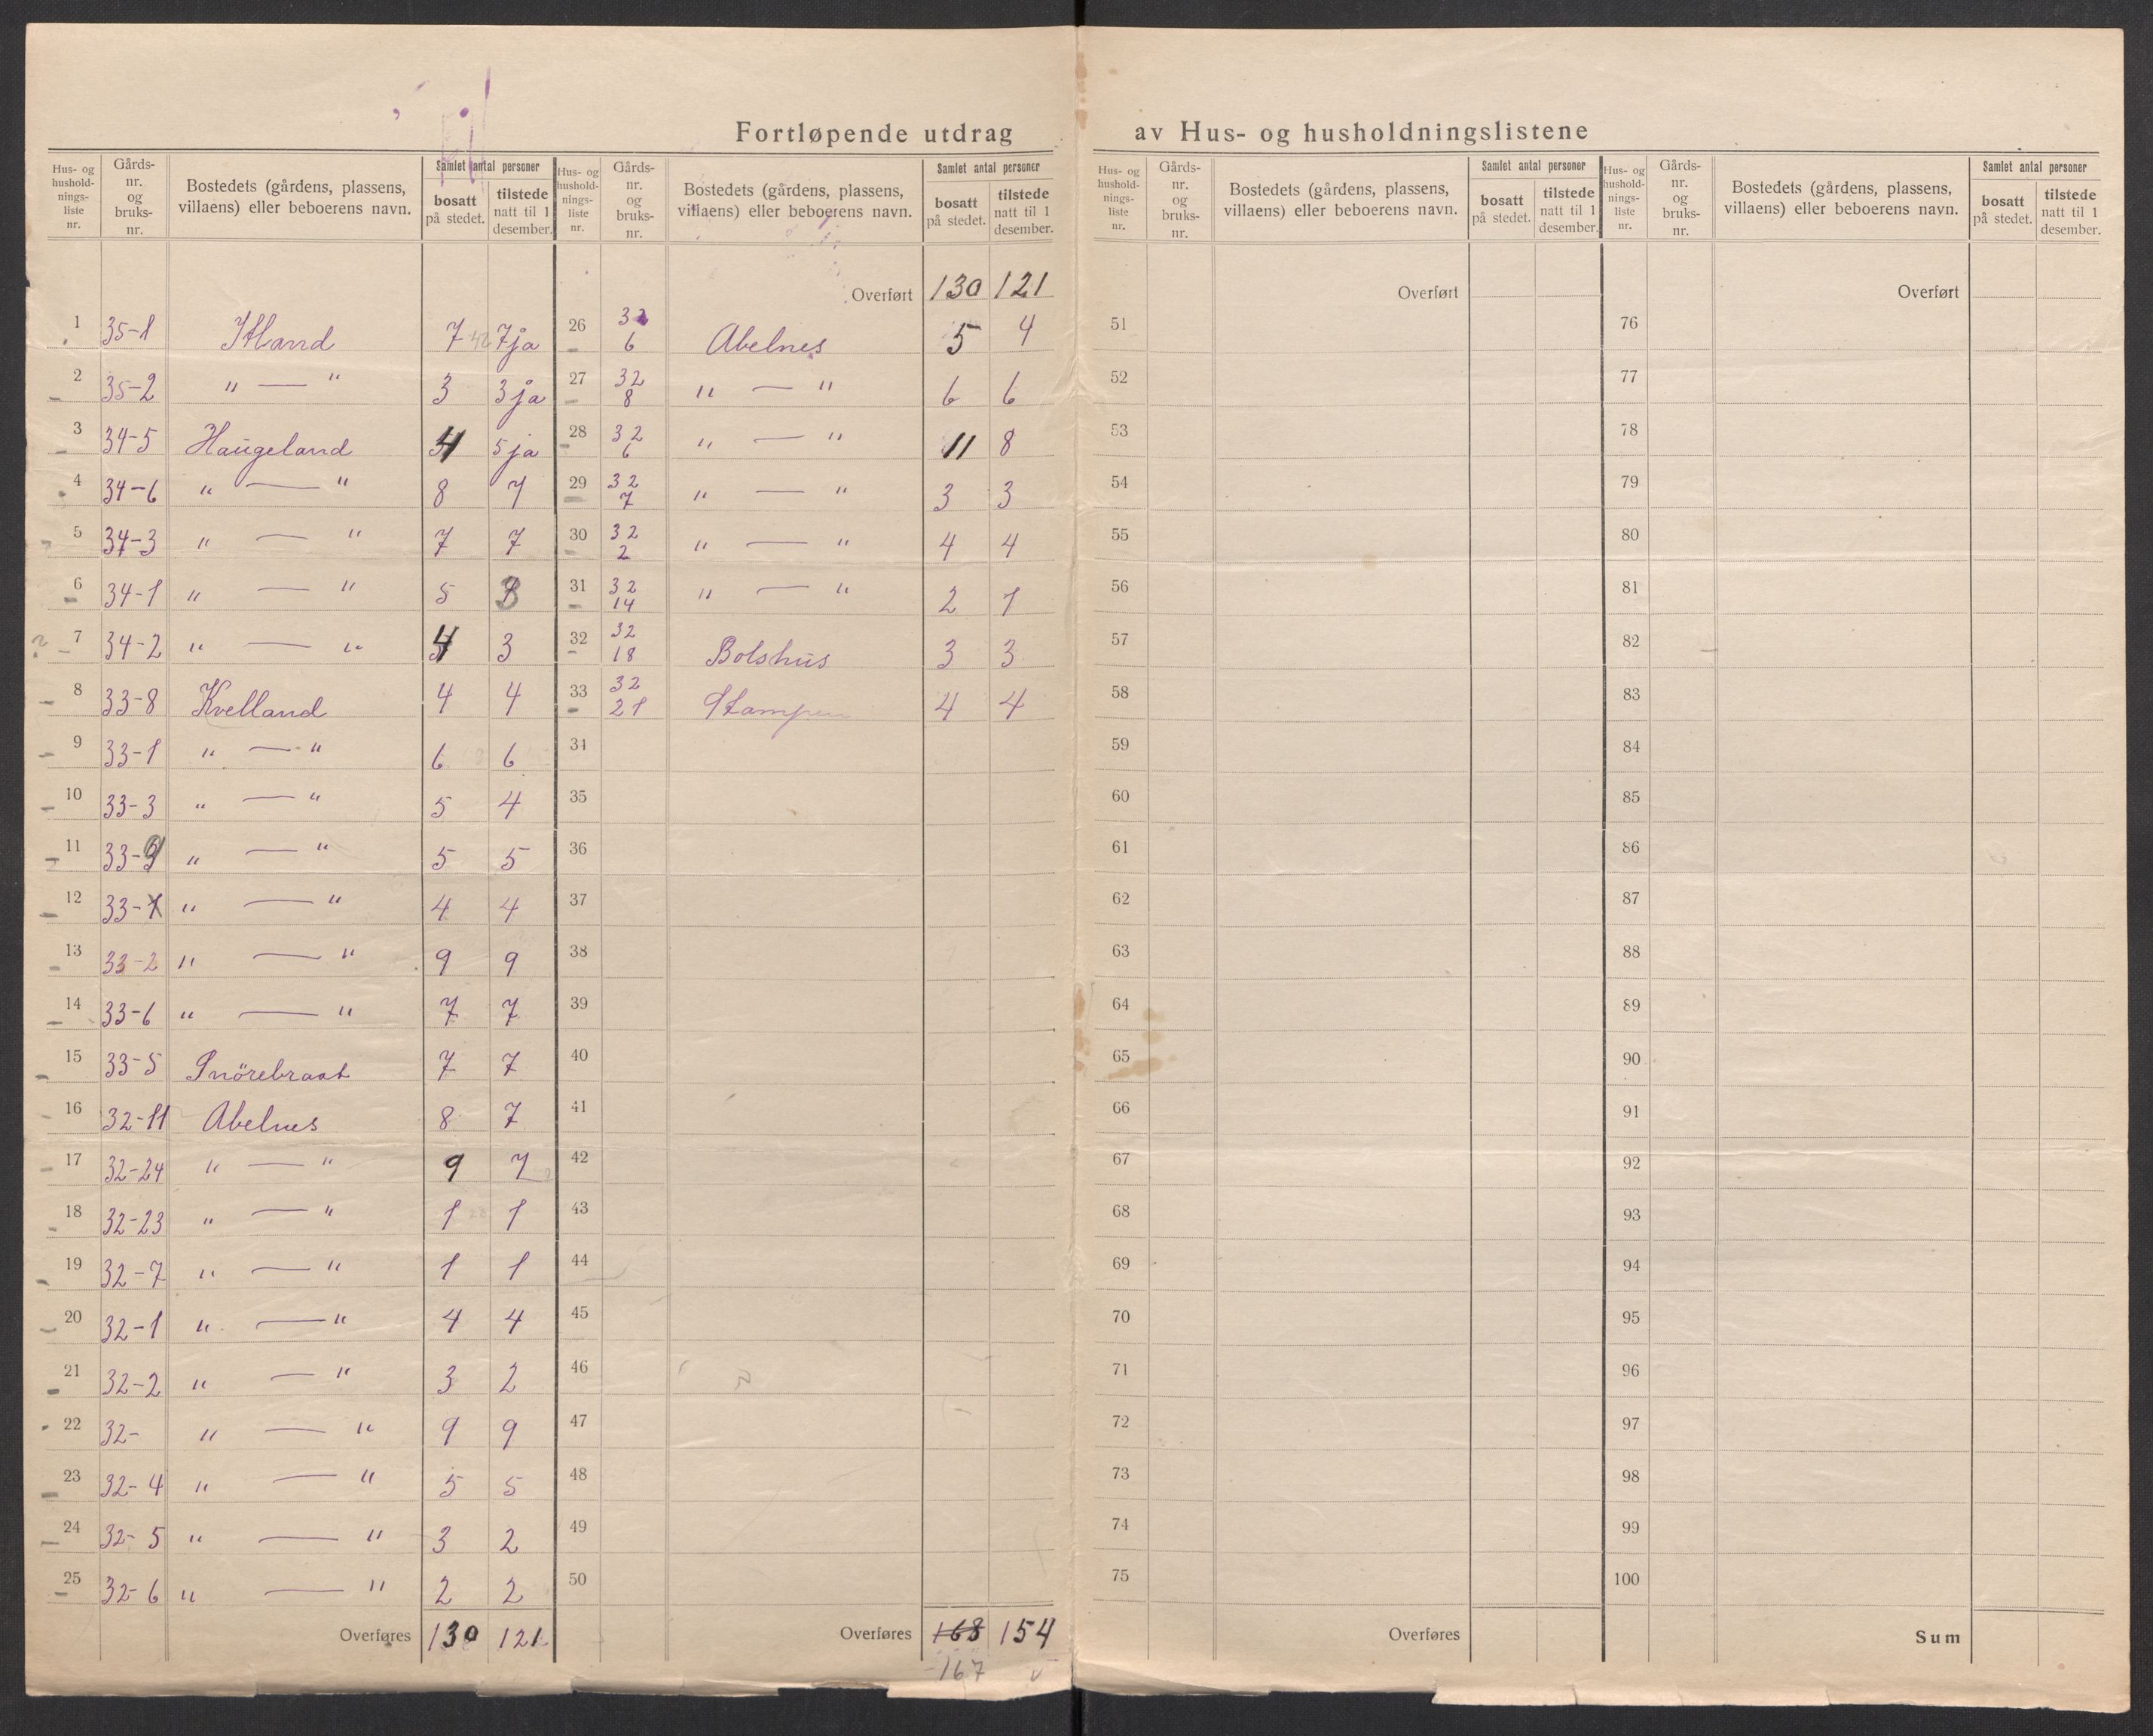 Fortløpende utdrag av Hus- og husholdningslistene
Hus- og hushold- nings- liste nr. Gårds- nr. og bruks- nr. Bostedets (gårdens, plassens, villaens) eller beboerens navn. Samlet antal personer bosatt på stedet. tilstede natt til 1 desember.
1 35-1 Itland 7 7 ja
2 35-2 " — " 3 3 ja
3 34-5 Haugeland 4 5 ja
4 34-6 " — " 8 7
5 34-3 " — " 7 7
6 34-1 " — " 5 3
7 34-2 " — " 4 3
8 33-8 Kvelland 4 4
9 33-1 " — " 6 6
10 33-3 " — " 5 4
11 33-9 " — " 5 5
12 33- " — " 4 4
13 33-2 " — " 9 9
14 33-6 " — " 7 7
15 33-5 Snörebraat 7 7
16 32-11 Abelnes 8 7
17 32-24 " — " 9 7
18 32-23 " — " 1 1
19 32-7 " — " 1 1
20 32-1 " — " 4 4
21 32-2 " — " 3 2
22 32- " — " 9 9
23 32-4 " — " 5 5
24 32-5 " — " 3 2
25 32-6 " — " 2 2
Overføres 130 121
Hus- og hushold- nings- liste nr. Gårds- nr. og bruks- nr. Bostedets (gårdens, plassens, villaens) eller beboerens navn. Samlet antal personer bosatt på stedet. tilstede natt til 1 desember.
Overført 130 121
26 32 6 Abelnes 5 4
27 32 8 " — " 6 6
28 32 6 " — " 11 8
29 32 7 " — " 3 3
30 32 2 " — " 4 4
31 32 14 " — " 2 1
32 32 18 Bolshus 3 3
33 32 21 Stampen 4 4
34
35
36
37
38
39
40
41
42
43
44
45
46
47
48
49
50
Overføres 168 154
167
Hus- og hushold- nings- liste nr. Gårds- nr. og bruks- nr. Bostedets (gårdens, plassens, villaens) eller beboerens navn. Samlet antal personer bosatt på stedet. tilstede natt til 1 desember.
Overført
51
52
53
54
55
56
57
58
59
60
61
62
63
64
65
66
67
68
69
70
71
72
73
74
75
Overføres
Hus- og hushold- nings- liste nr. Gårds- nr. og bruks- nr. Bostedets (gårdens, plassens, villaens) eller beboerens navn. Samlet antal personer bosatt på stedet. tilstede natt til 1 desember.
Overført
76
77
78
79
80
81
82
83
84
85
86
87
88
89
90
91
92
93
94
95
96
97
98
99
100
Sum